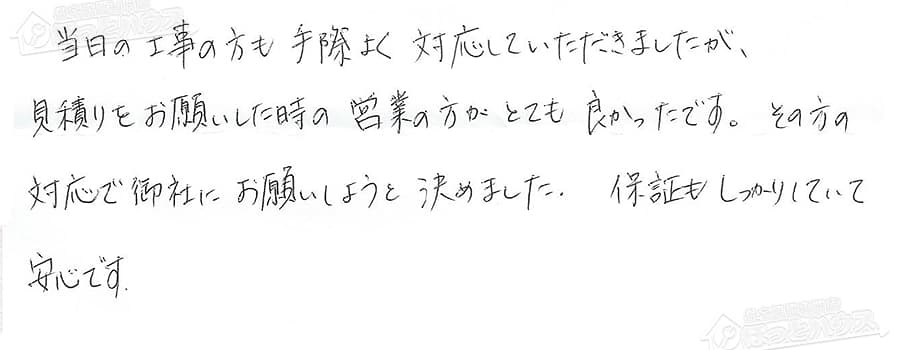 当日の工事の方も手際よく対応していただきましたが、
見積りをお願いした時の営業の方がとても良かったです。その方の
対応で御社にお願いしようと決めました. 保証もしっかりしていて
安心です.
ほっとハウス